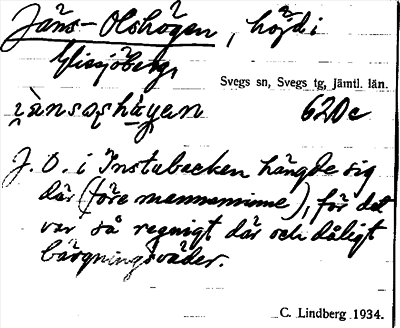 Jäns-Olshögen, höjd i
Glissjöberg,
Svegs sn, Svegs tg, Jämtl. län.
62De
J. O. i Instabacken hängde sig
där (före mannaminne), för det
var så regnigt där och dåligt
bärgningsväder.
C. Lindberg 1934.